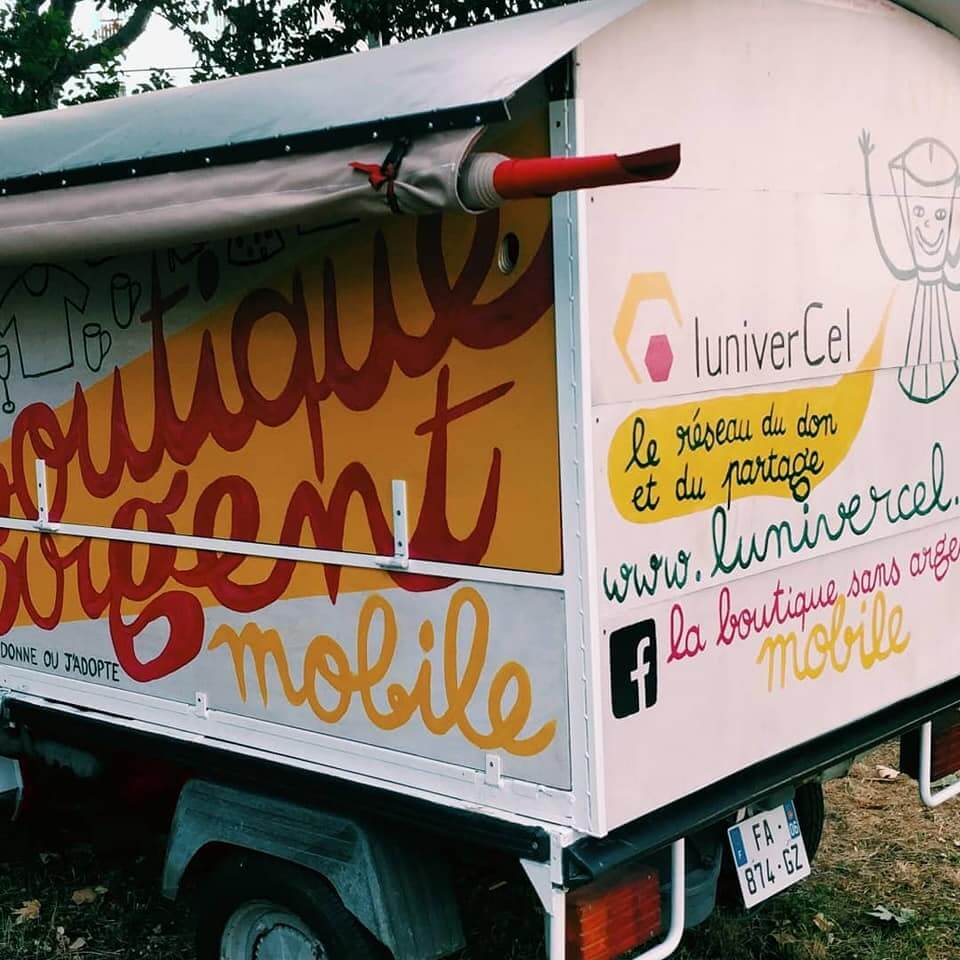 outique
argent
mobile
DONNE OU J'ADOPTE
luniverCel
le réseau du don
et du partage
www.lunivercel.
la boutique sans arge
mobile
f
F
06
FA-
874-GZ